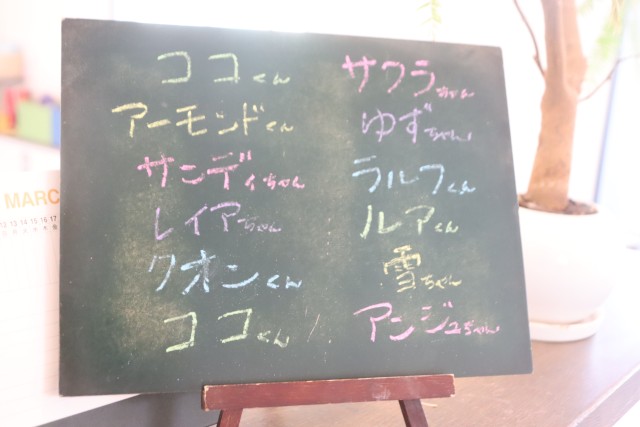 ココくん
アーモンドくん
サンディちゃん
レイアちゃん
クオンくん
ココくん
サクラちゃん
ゆずちゃん
ラルフくん
ルアくん
雪ちゃん
アンジュちゃん
MARC
12 13 14 15 16 17